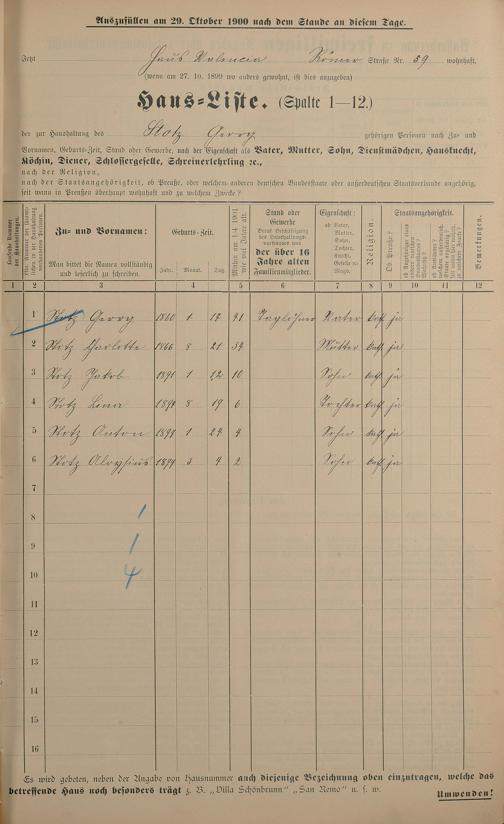 Auszufüllen am 29. Oktober 1900 nach dem Stande an diesem Tage.
Jetzt Haus Valencia Römer Straße Nr. 59 wohnhaft.
(wenn am 27. 10. 1899 wo anders gewohnt, ist dies anzugeben)
Haus=Liste. (Spalte 1—12.)
der zur Haushaltung des Stotz Georg gehörigen Personen nach Zu- und
Vornamen, Geburts-Zeit, Stand oder Gewerbe, nach der Eigenschaft als Vater, Mutter, Sohn, Dienstmädchen, Hausknecht,
Köchin, Diener, Schlossergeselle, Schreinerlehrling ꝛc.,
nach der Religion,
nach der Staatsangehörigkeit, ob Preuße, oder welchem anderen deutschen Bundesstaate oder außerdeutschen Staatsverbande angehörig,
seit wann in Preußen überhaupt wohnhaft und zu welchem Zwecke?
Laufende Nummer der Haushaltungen.
Zu- und Vornamen:
Man bittet die Namen vollständig und leserlich zu schreiben.
Geburts-Zeit.
Jahr. Monat. Tag.
Mithin am 1.4. 1901 wie viel Jahre alt.
Stand oder Gewerbe
der über 16 Jahre alten Familienmitglieder.
Eigenschaft:
ob Vater, Mutter, Sohn, Tochter, Knecht, Geselle etc. Magd.
Religion.
Staatsangehörigkeit.
Ob Preuße?
Bemerkungen.
1 2 3 4 5 6 7 8 9 10 11 12
1 Stotz Georg 1860 1 17 41 Taglöhner Vater kath ja
2 Stotz Charlotte 1866 8 21 34 Mutter kath ja
3 Stotz Jakob 1891 1 22 10 Sohn kath ja
4 Stotz Lena 1894 8 19 6 Tochter kath ja
5 Stotz Anton 1897 1 24 4 Sohn kath ja
6 Stotz Aloysius 1899 3 4 2 Sohn kath ja
7
8 1
9 1
10 4
11
12
13
14
15
16
Es wird gebeten, neben der Angabe von Hausnummer auch diejenige Bezeichnung oben einzutragen, welche das
betreffende Haus noch besonders trägt z. B. „Villa Schönbrunn" „San Remo" u. s. w.
Umwenden!